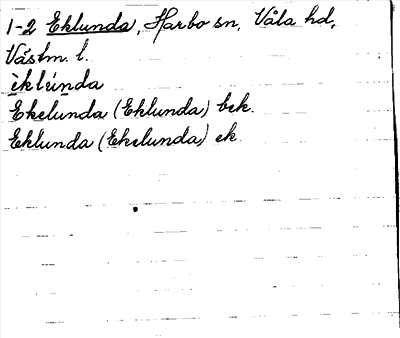 1-2 Eklunda, Harbo sn, Våla hd,
Västm. l.
èklúnda
Ekelunda (Eklunda) bek.
Eklunda (Ekelunda) ek